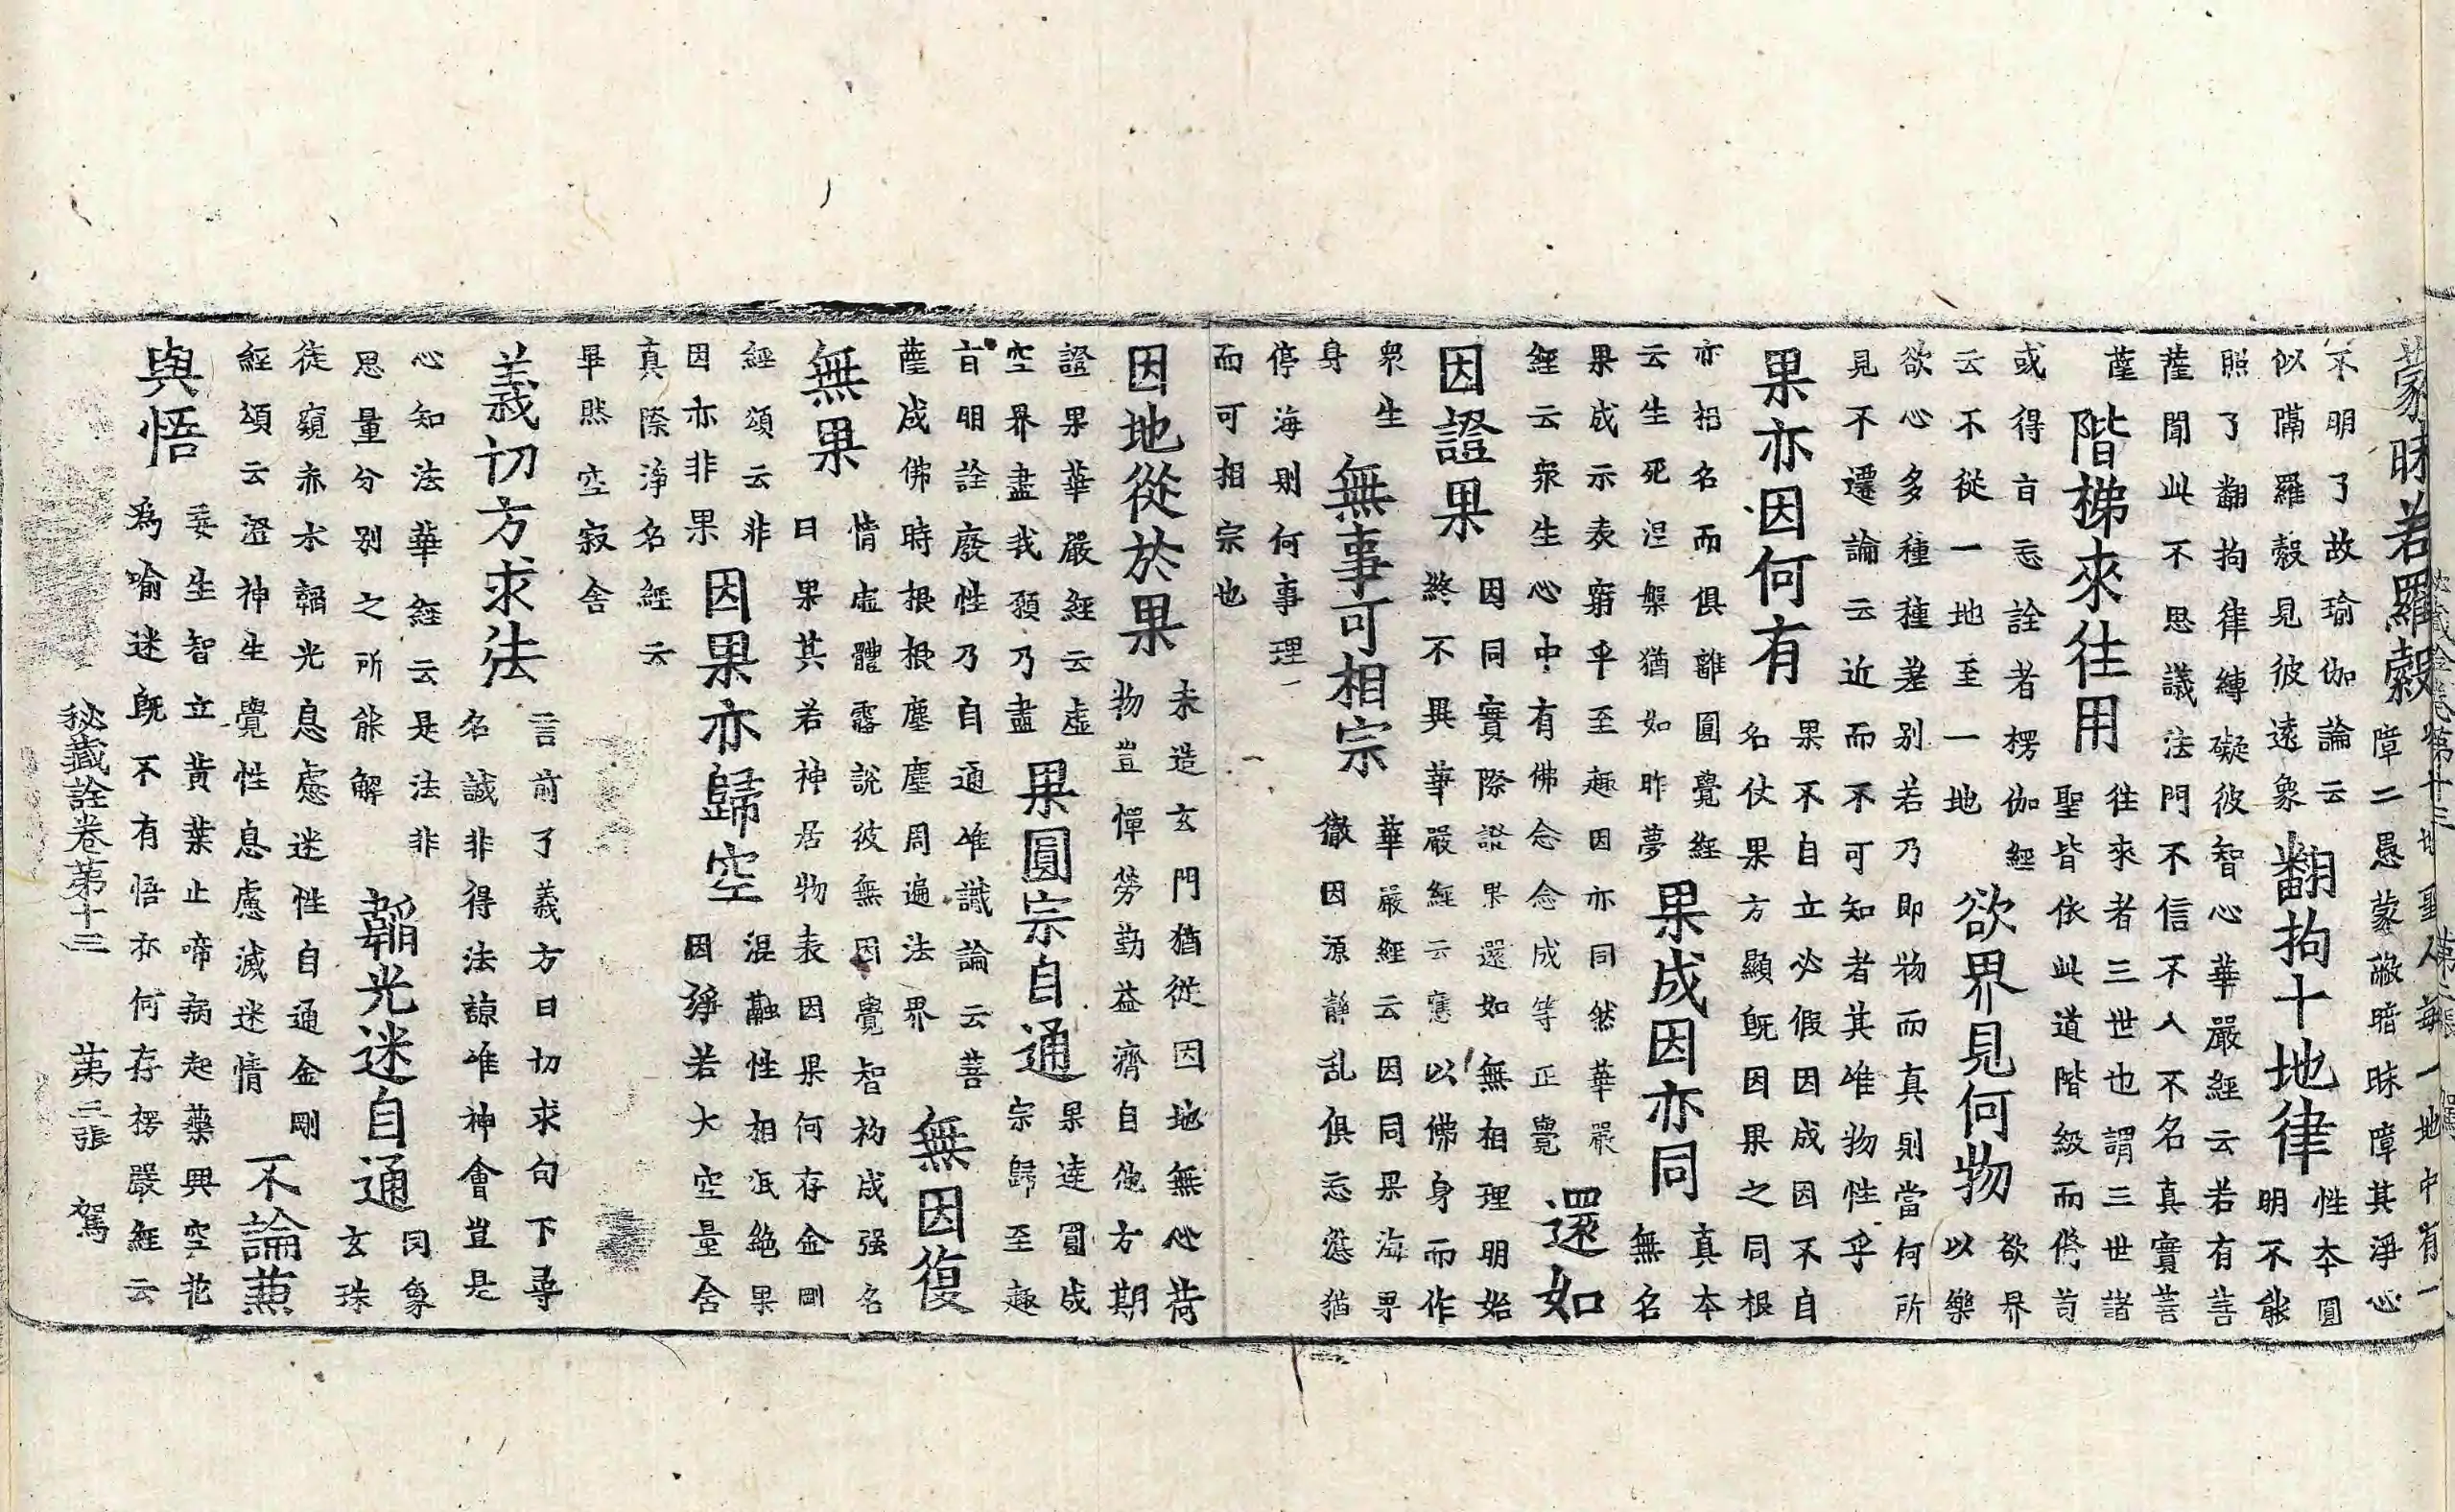 蒙昧若羅縠
地聖人每一地中有一
障二愚蒙蔽暗昧障其淨心
不明了故瑜伽論云
似隔羅縠見彼遠象
翻拘十地律
性本圓
明不能
照了翻拘律縛礙彼智心華嚴經云若有菩
薩聞此不思議法門不信不入不名真實菩
薩
階梯來往用
往來者三世也謂三世諸
聖皆依此道階級而脩苟
或得旨忘詮者楞伽經
云不從一地至一地
欲界見何物
欲界
以樂
欲心多種種差別若乃即物而真則當何所
見不遷論云近而不可知者其唯物性乎
果亦因何有
果不自立必假因成因不自
名仗果方顯既因果之同根
亦相名而俱離圓覺經
云生死涅槃猶如昨夢
果成因亦同
真本
無名
果成示表窮乎至趣因亦同然華嚴
經云衆生心中有佛念念成等正覺
還如
因證果
因同實際證果還如無相理明始
終不異華嚴經云應以佛身而作
衆生
身
無事可相宗
華嚴經云因同果海界
徹因源靜乱俱忘愆猶
停海則何事理一
而可相宗也
因地從於果
未造玄門猶從因地無心荷
物豈憚勞勤益濟自他方期
證果華嚴經云虛
空界盡我願乃盡
果圓宗自通
果達圓成
宗歸至趣
旨明詮廢性乃自通唯識論云菩
薩成佛時根根塵塵周遍法界
無因復
無果
情虛體露說彼無因覺智构成强名
曰果其若神居物表因果何存金剛
經頌云非
因亦非果
因果亦歸空
混融性相泯絶果
因彌若大空量含
真際淨名經云
畢然空寂舍
義切方求法
言前了義方曰切求句下尋
名誠非得法諒唯神會豈是
心知法華經云是法非
思量分別之所能解
韜光迷自通
罔象
玄珠
徒窺赤水韜光息慮迷性自通金剛
經頌云澄神生覺性息慮滅迷情
不論兼
與悟
妄生智立黃葉止啼病起藥興空花
爲喻迷既不有悟亦何存楞嚴經云
秘藏詮卷第十三 第三張 駕